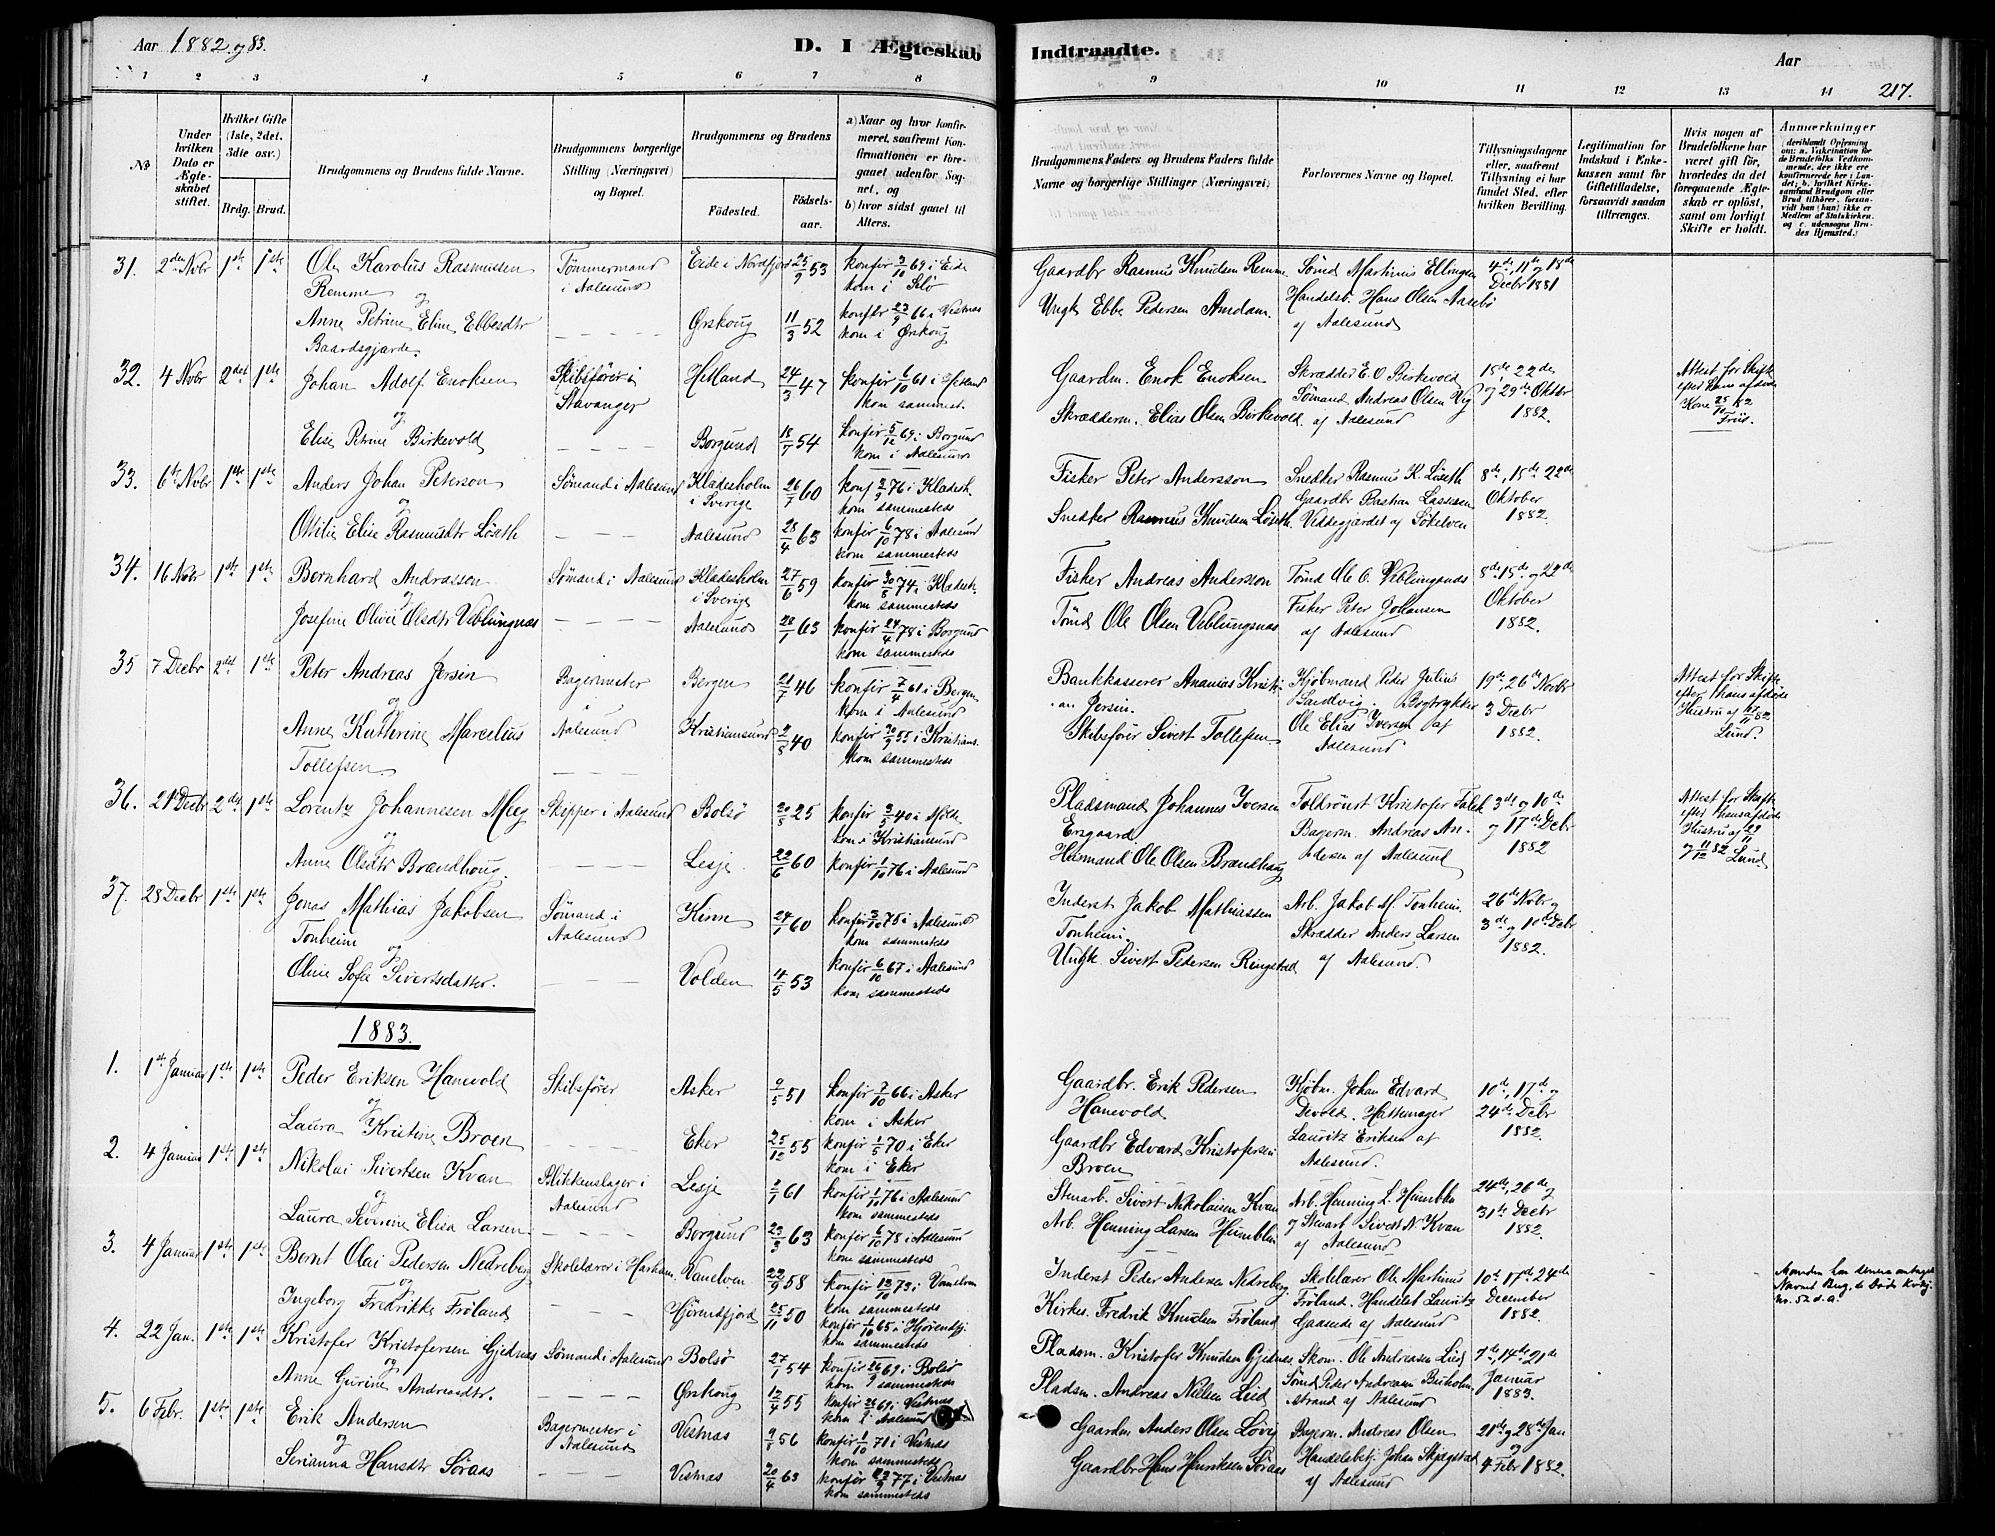 Aar 1882 og 83.
D. I Ægteskab Indtraadte.
Aar
217.
1 2 3 4 5 6 7 8 9 10 11 12 13 14
No
Under hvilken Dato er Ægteskabet stiftet.
Hvilket Gifte (1ste, 2det, 3die osv.)
Brdg. Brud.
Brudgommens og Brudens fulde Navne.
Brudgommens borgerlige Stilling (Næringsvei) og Bopæl.
Brudgommens og Brudens
Fødested.
Fødselsaar.
a) Naar og hvor konfirmeret, saafremt Konfirmationen er foregaaet udenfor Sognet, og
b) hvor sidst gaaet til Alters.
Brudgommens Faders og Brudens Faders fulde Navne og borgerlige Stillinger (Næringsvei)
Forlovernes Navne og Bopæl.
Tillysningsdagene eller, saafremt Tillysning ei har fundet Sted, efter hvilken Bevilling.
Legitimation for Indskud i Enkekassen samt for Giftetilladelse, forsaavidt saadan tiltrænges.
Hvis nogen af Brudefolkene har været gift før, hvorledes da det foregaaende Ægteskab er opløst, samt om lovligt Skifte er holdt.
Anmærkninger
31. 2den Novbr 1ste 1ste Ole Karolus Rasmussen Remme Tømmermand i Aalesund Eide i Nordfjord 25/9 53 konfir 3/10 69 i Eide kom i Selø Gaardbr Rasmus Knudsen Remme Sømd Martinus Ellingsen 4de, 11te og 18de Decbr 1881
og
Anne Petrine Eline Ebbesdtr Baardsgjarde. Ørskoug 11/3 52 konfir 23/9 66 i Vestnæs kom i Ørskoug Ungk Ebbe Pedersen Amdam. Handelsb. Hans Olsen Aasebø af Aalesund
32. 4 Novbr 2det 1ste Johan Adolf Enoksen Skibsfører i Stavanger Hetland 24/3 47 konfir 6/10 61 i Hetland kom sammest. Gaardm. Enok Enoksen Skrædder E. O Birkevold 15de 22de og 29de Oktbr 1882. Attest for Skifte efter hans afdøde Kone 25/10 82 Friis.
og
Elise Petrine Birkevold Borgund 18/7 54 konfir 5/12 69 i Borgund kom i Aalesund Skrædderm. Elias Olsen Birkevold Sømand Andreas Olsen Vig af Aalesund
33. 6te Novbr 1ste 1ste Anders Johan Peterson Sømand i Aalesund Kladesholm i Sverige 26/7 60 konf 2/9 76 i Kladesh. kom sammesteds Fisker Peter Andersson Snedker Rasmus K. Løseth 8de, 15de 22de Oktober 1882.
og
Ottilie Elise Rasmusdtr Løseth Aalesund 28/4 63 konfir 6/10 78 i Aalesund kom sammesteds Snedker Rasmus Knudsen Løseth. Gaardbr Bastian Lassesen Viddegjærdet af Søkelven
34. 16 Novbr 1ste 1ste Bernhard Andrasson Sømand i Aalesund Kladesholm i Sverige 27/6 59 konfir 30/8 74 i Kladesh. kom sammesteds Fisker Andreas Anderson Tømd Ole O. Veblungsnæs 8de 15de og 22de Oktober 1882.
og
Josefine Olivie Olsdtr Veblungnæs Aalesund 28/1 63 konfir 24/4 78 i Borgund kom sammesteds Tømd Ole Olsen Veblungsnæs Fisker Peter Johansen af Aalesund
35 7 Decbr 2det 1ste Peter Andreas Jersin Bagermester Aalesund Bergen 21/7 46 konfir 7/4 61 i Bergen kom i Aalesund Bankkasserer Ananias Kristian Jersin. Kjøbmand Peder Julius Sandvig. Bogtrykker 19de, 26de Novbr 3 Decbr 1882. Attest for Skifte efter hans afdøde Hustru af Lund.
og
Anne Kathrine Marcelius Tollefsen Kristiansund 2/8 40 konfir 30/9 55 i Kristians. kom sammesteds Skibsfører Sivert Tollefsen. Ole Elias Iversen af Aalesund
36. 21 Decbr 2det 1ste Lorentz Johannesen Meeg Skipper i Aalesund Bolsø 20/8 25 konfir 3/5 40 i Molde kom i Kristiansund Pladsmand Johannes Iversen Ersgaard Toldrorst Kristofer Falck 3de og 10de og 17de Decbr 1882 Attest for Skifte efter hans afdøde Hustru af Lund
og
Anne Olsdtr Brandhoug. Lesje 22/6 60 konfir 1/10 76 i Aalesund Husmand Ole Olsen Brandhaug Bagerm. Andreas Andesen af Aalesund
37. 28 Decbr 1ste 1ste Jonas Mathias Jakobsen Tonheim Sømand i Aalesund Kinn 24/1 60 konfir 3/10 75 i Aalesund kom sammesteds Inderst Jakob Mathiassen Tonheim Arb. Jakob M. Tonheim. 26de Novbr og 3de og 10de Decbr 1882.
og
Olivie Sofie Sivertsdatter. Volden 4/5 53 konfir 6/10 67 i Aalesund kom sammesteds Ungk Sivert Pedersen Ringstad Skrædder Anders Larsen af Aalesund.
1883.
1. 1ste Januar 1ste 1ste Peder Eriksen Hanevold Skibsfører Asker 9/5 51 konfir 7/10 66 i Asker kom i Asker Gaardbr. Erik Pedersen Hanevold Kjøbm. Johan Edvard Devold. Hattemager 10de, 17de og 24de Decbr 1882.
og
Laura Kristine Broen Eker 25/12 55 konfir 1/5 70 i Eker kom i Eker Gaardbr Edvard Kristofersen Broen Lauritz Eriksen af Aalesund.
2. 4 Januar 1ste 1ste Nikolai Sivertsen Kvan Blikkenslager i Aalesund Lesje 2/7 61 konfir 1/10 76 i Aalesund kom sammesteds Stenarb. Sivert Nikolaisen Kvan Arb. Henning L. Humblen 24de, 26de og 31te Decbr 1882.
og
Laura Severine Elisa Larsen Borgund 23/3 63 konfir 6/10 78 i Aalesund kom sammesteds Arb. Henning Larsen Humblen og Stenarb Sivert N. Kvan af Aalesund
3. 4 Januar 1ste 1ste Bernt Olai Pedersen Nedreberg Skolelærer i Harham. Vanelven 22/9 58 konfir 12/10 73 i Vanelven kom sammesteds Inderst Peder Andersen Nedreberg Skolelærer Ole Martinus Frøland. 10de 17de 24de December 1882.
og
Ingeborg Fredrikke Frøland Hjørendfjord 25/11 50 konfir 1/10 65 i Hjørendfj. kom sammesteds Kirkes. Fredrik Knudsen Frøland Handelsb Lauritz Gaaseide af Aalesund
4. 22 Jan. 1ste 1ste Kristofer Kristofersen Gjednæs Sømand i Aalesund Bolsø 27/7 54 konfir 26/9 69 i Bolsø kom sammesteds Pladsm. Kristofer Knudsen Gjednæs Skom. Ole Andreasen Lied 7de, 14de 21de Januar 1883.
og
Anne Gurine Andreasdtr. Ørskoug 12/4 55 konfir 26/9 69 i Vestnæs kom i Aalesund Pladsm. Andreas Nielsen Leid Sømd Peter Andreasen Buholmstrand af Aalesund
5. 6 Febr. 1ste 1ste Erik Andersen Bagermester i Aalesund Vestnæs 9/5 56 konfir 1/10 71 i Vestnæs kom sammesteds Gaardm Anders Olsen Løvig Bagerm. Andreas Olsen 21de og 28de Jan og 4 Febr 1882.
og
Serianna Hansdtr Søraas Vestnæs 20/4 63 konfir 23/9 77 i Vestnæs kom sammesteds Gaardbr Hans Henriksen Søraas Handelsbetj. Johan Skjegstad af Aalesund